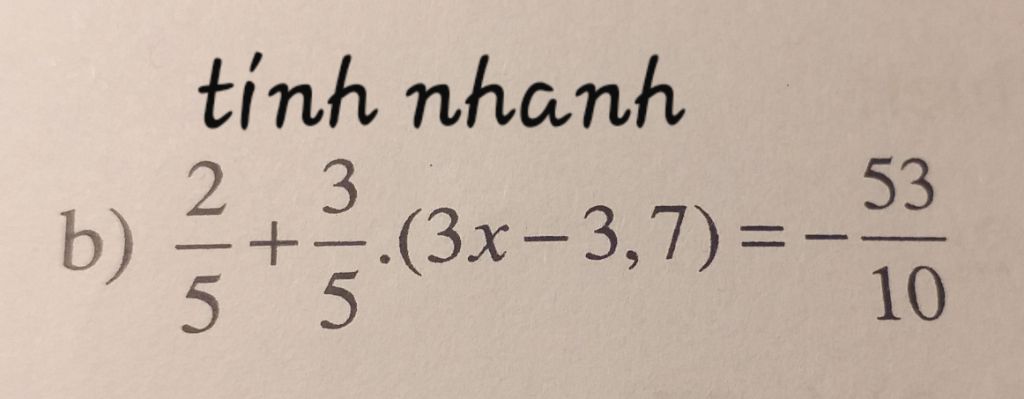 tính nhanh
b) 2/5 + 3/5 .(3x − 3,7) = − 53/10